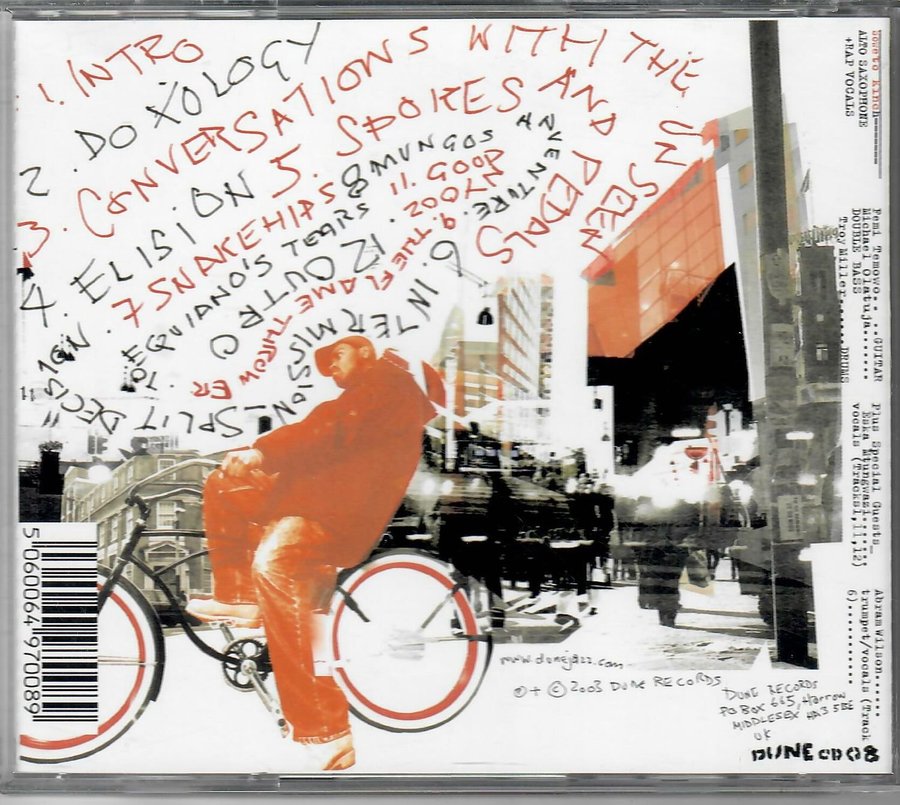 1. INTRO
2. DOXOLOGY
3. CONVERSATIONS WITH THE UNSEEN
4. ELISION
5. SPOKES AND PEDALS
6 INTERMISSION_SPLIT DECISION.
7 SNAKEHIPS
8 MUNGOS ADVENTURE.
9. THE FLAME THROWER
10 EQUIANO'S TEARS
11. GOOD NYOOZ.
12 OUTRO
Soweto Kinch
ALTO SAXOPHONE
+RAP VOCALS
Femi Temowo. ..GUITAR
Michael Olatuja........
DOUBLE BASS
Troy Miller......DRUMS
Plus Special Guests_
Eska Mtungwazi......
vocals (Tracks1,11,12)
Abram Wilson......
trumpet/vocals (Track
6)..............
www.dunejazz.com
℗ + © 2003 DUNE RECORDS
DUNE RECORDS
PO BOX 665, Harrow
MIDDLESEX HA3 5BE
UK
DUNE CD 08
5 060064 970089